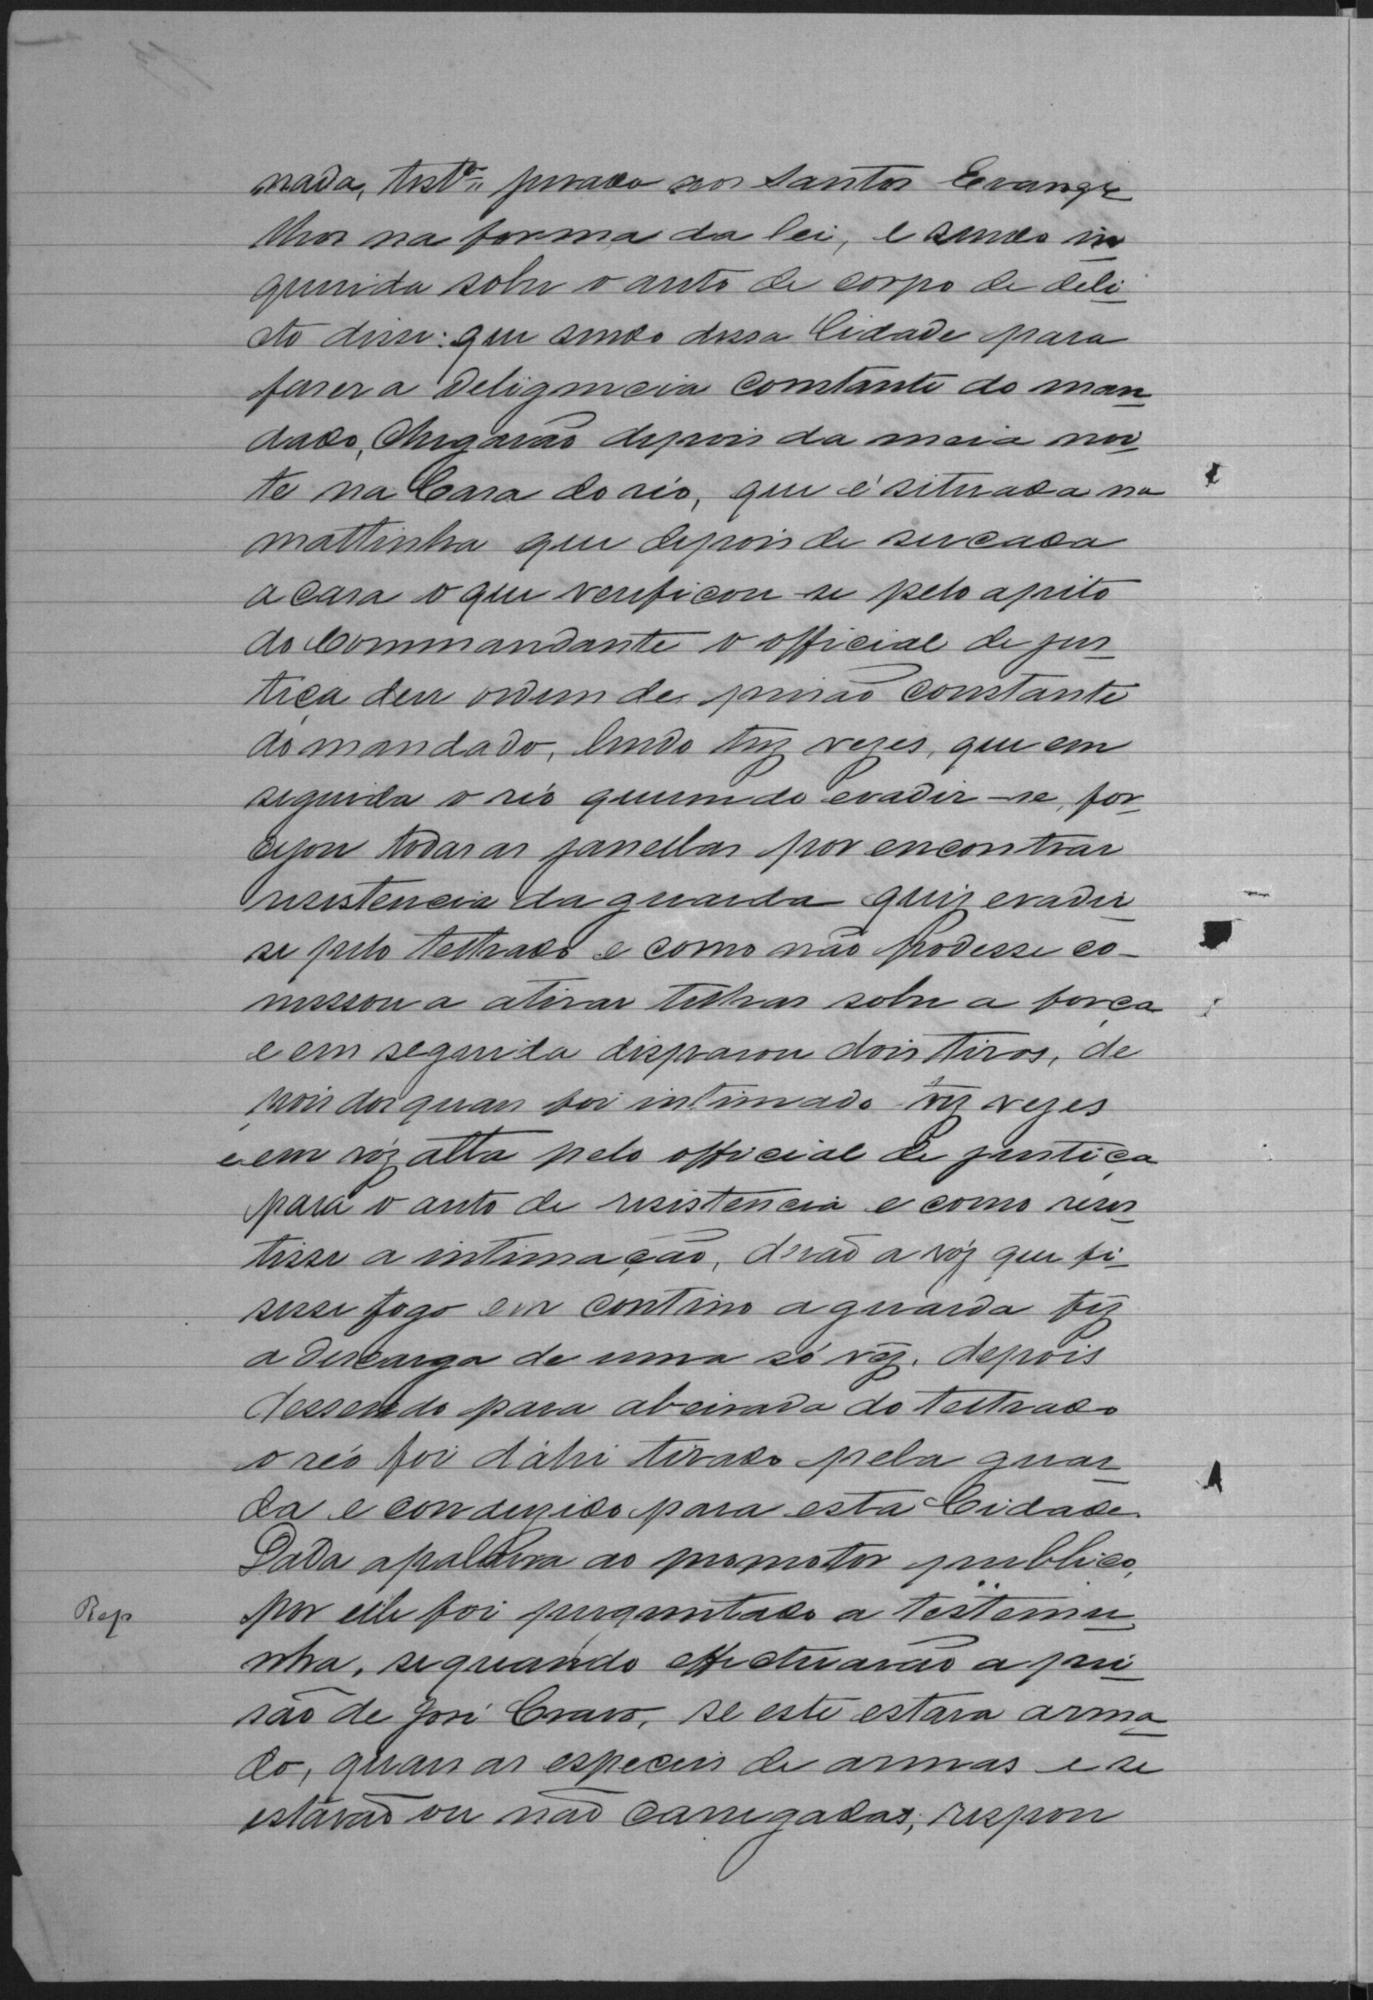 nada, testª jurada aos Santos Evange
lhos na forma da lei, e sendo in
querida sobre o auto de corpo de deli
cto disse: que sendo dessa Cidade para
faser a deligencia constante do man
dado, chegarão depois da meia noi
te na Casa do réo, que é situada na
mattinha que depois de sercada
a casa o que verificou-se pelo apito
do Commandante o official de jus
tiça deu ordem de prisão constante
do mandado, lendo trez vezes, que em
seguida o réo querendo evadir-se, for
cejou todas as janellas por encontrar
resistencia da guarda quiz evadir
se pelo telhado e como não podesse co-
messou a atirar telhas sobre a força
e em seguida disparou dois tiros, de
pois dos quaes foi intimado trez vezes
e em vóz alta pelo official de justiça
para o auto de resistencia e como resis
tisse a intimação, derão a vóz que fi
sesse fogo em contino a guarda fez
a descarga de uma só vez. depois
dessendo para abeirada do telhado
o réo foi d'ahi tirado pela guar
da e conduzido para esta Cidade.
Dada a palavra ao promotor publico,
Rep
por elle foi perguntado a testemu
nha, se quando effectuarão a pri
são de José Cravo, se este estava arma
do, quaes as especies de armas e se
estavão ou não carregadas, respon